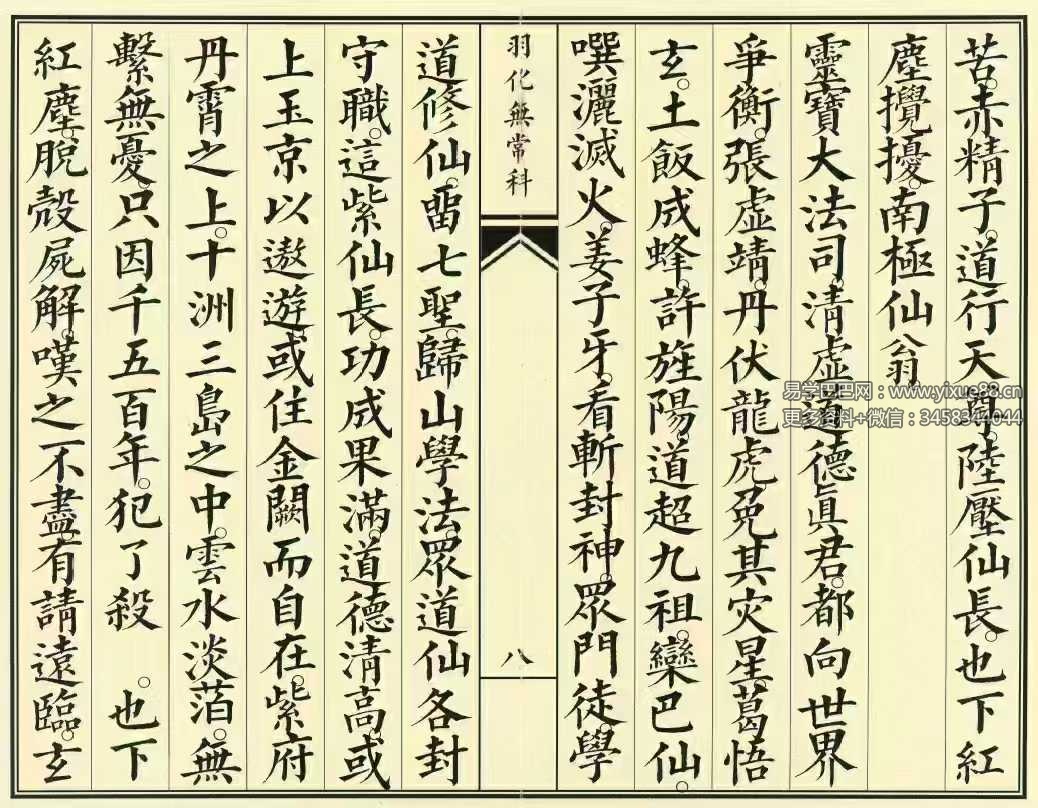 苦。赤精子。道行天尊。陸壓仙長。也下紅
塵攪擾。南極仙翁。
靈寶大法司。清虛道德眞君。都向世界
爭衡。張虛靖。丹伏龍虎。免其灾星。葛悟
玄。土飯成蜂。許旌陽。道超九祖。欒巴仙。
噀灑滅火。姜子牙。看斬封神。眾門徒。學
羽化無常科
八
道修仙。畱七聖。歸山學法。眾道仙各封
守職。這紫仙長。功成果滿。道德清高。或
上玉京以遨遊。或住金闕而自在。紫府
丹霄之上。十洲三島之中。雲水淡萡。無
繫無憂。只因千五百年。犯了殺 。也下
紅塵。脫殼屍解。嘆之不盡。有請遠臨。玄
易学巴巴网：www.yixue88.cn
更多资料+微信：3458344044